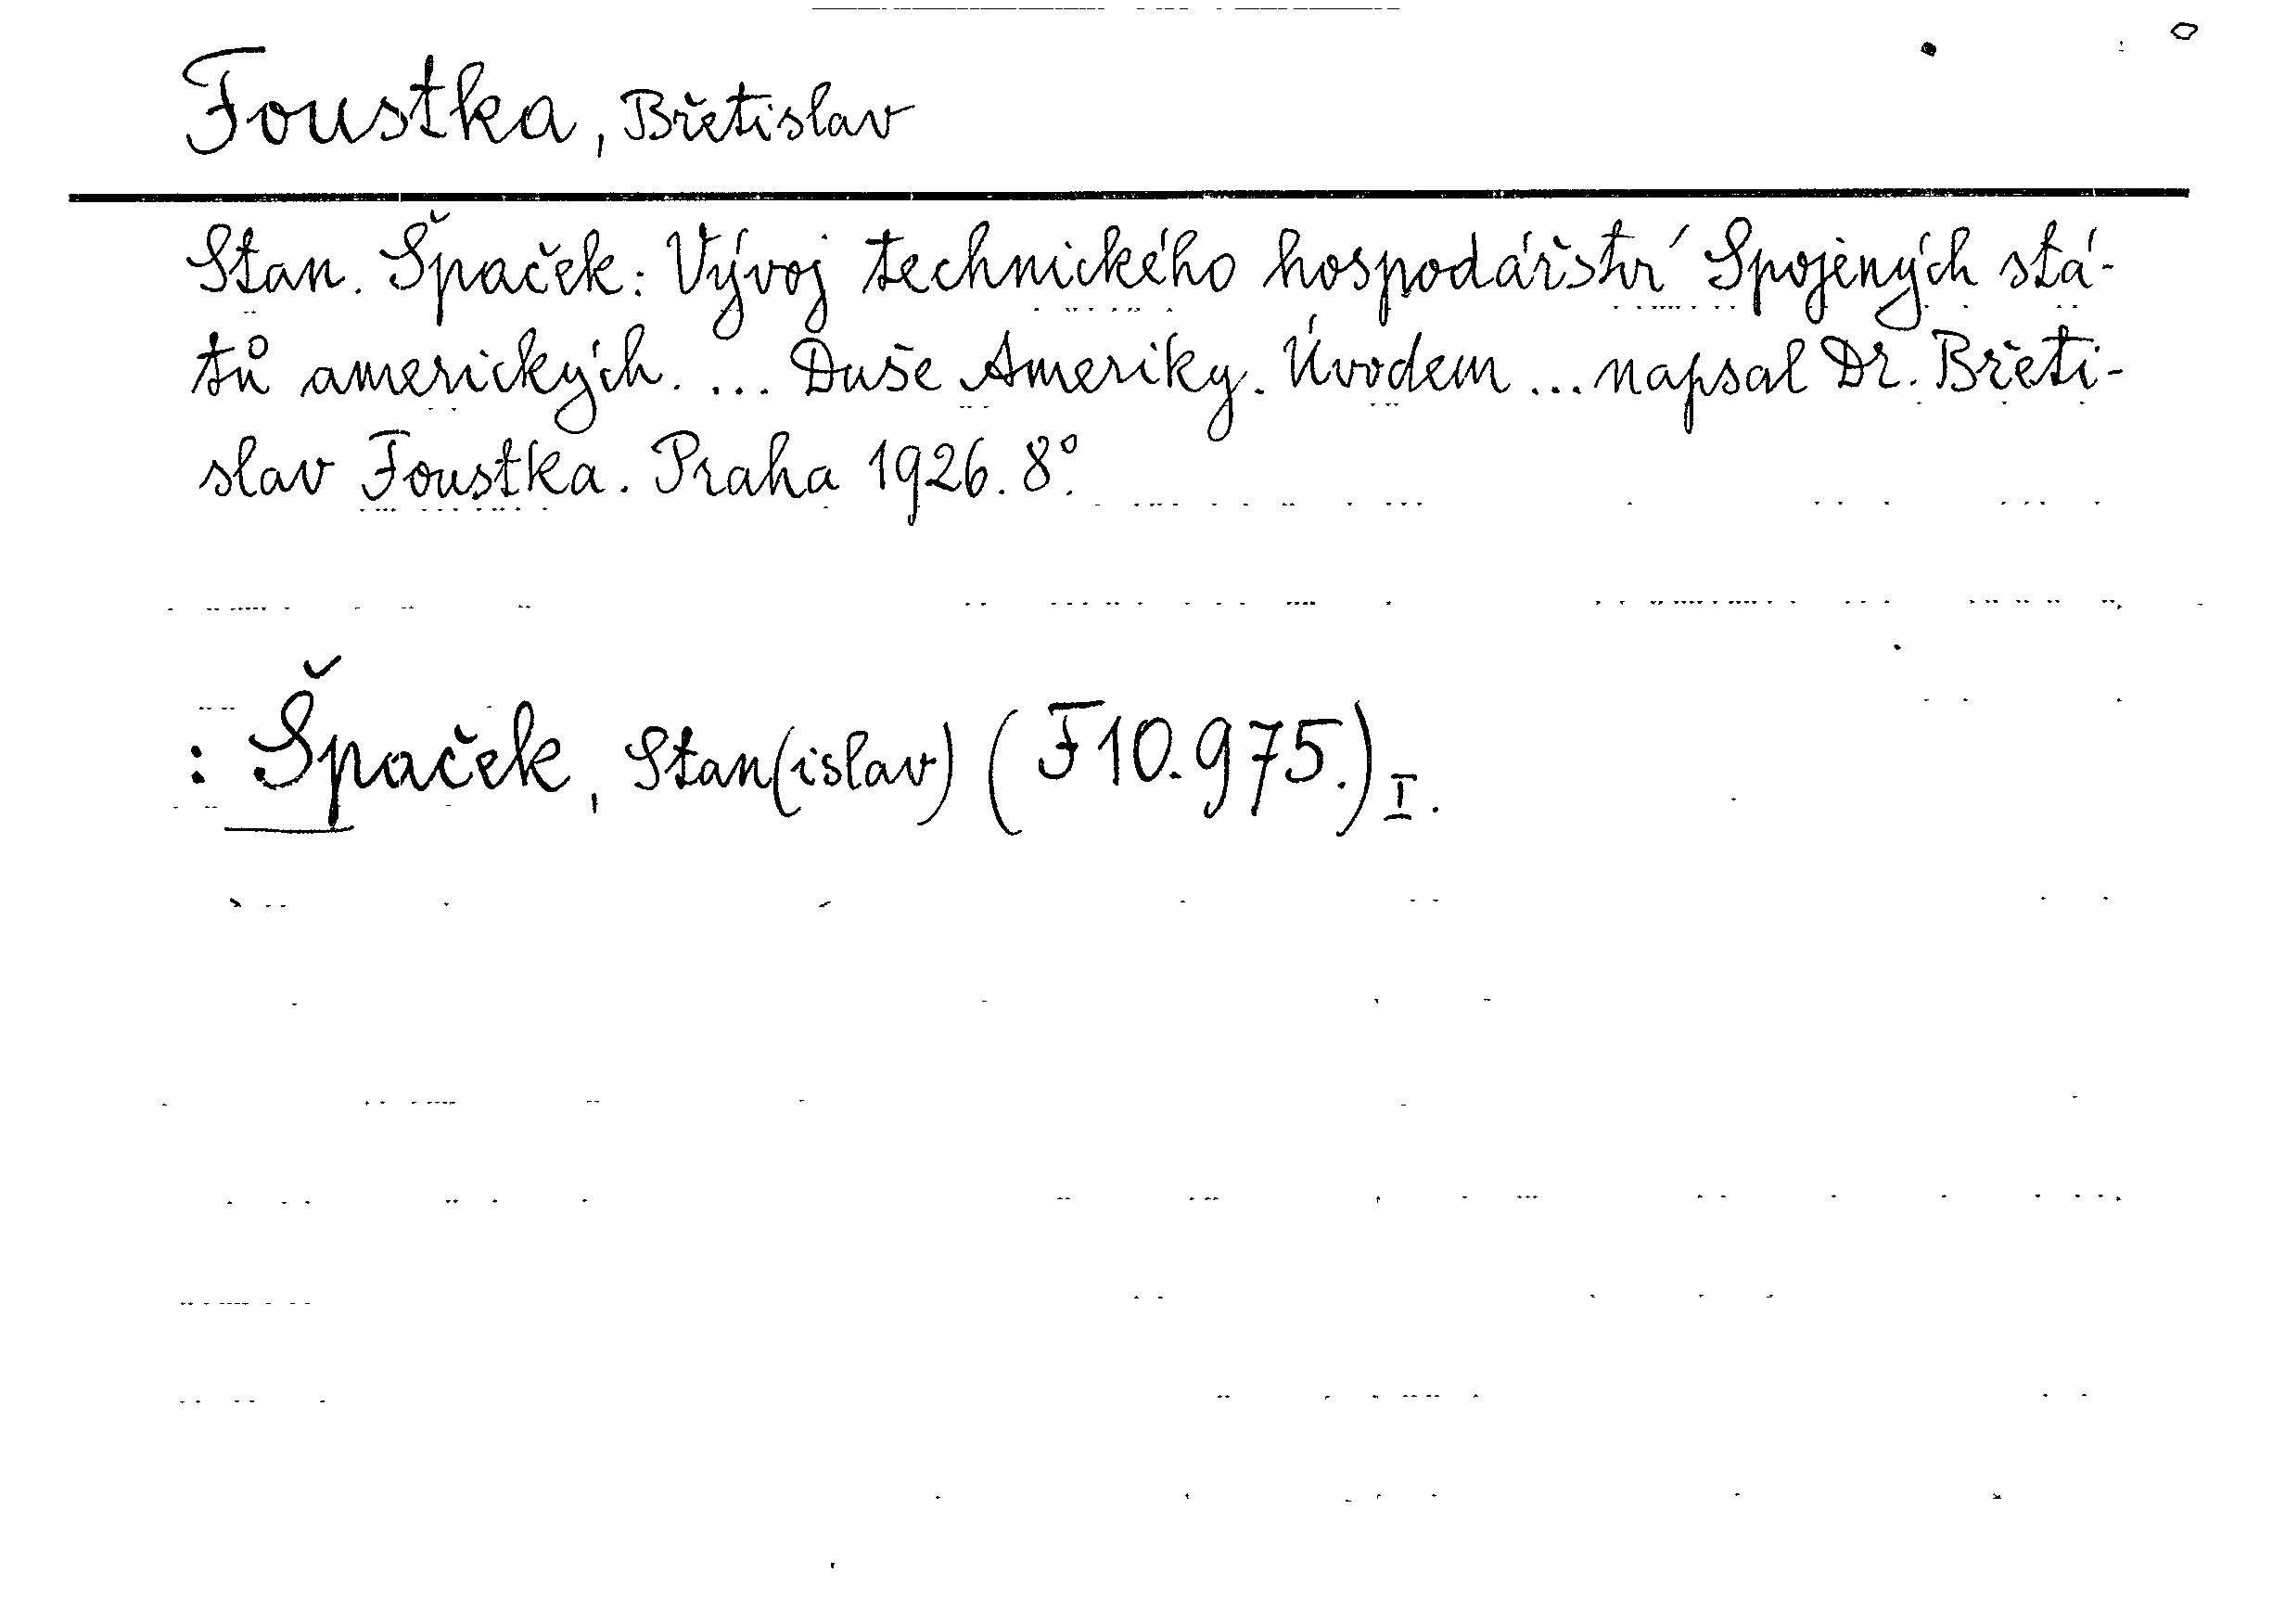 Foustka, Břetislav
Stan. Špaček: Vývoj technického hospodářství Spojených stá-
tů amerických. ... Duše Ameriky. Úvodem ... napsal Dr. Břeti-
slav Foustka. Praha 1926. 8°.
: Špaček, Stan(islav) (F10.975.) I.